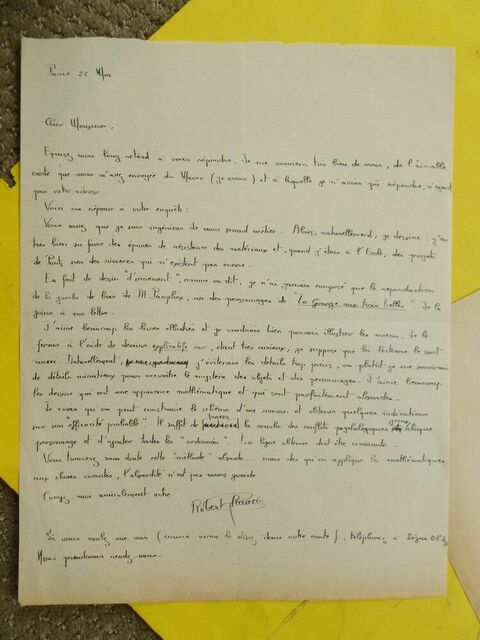 Paris 22 Mai
Cher Monsieur,
Excusez mon long retard à vous répondre. Je me souviens très bien de vous, de l'aimable
carte que vous m'avez envoyée du Maroc (je crois) et à laquelle je n'avais pu répondre, n'ayant
pas votre adresse.
Voici ma réponse à votre enquête :
Vous savez que je suis ingénieur de mon second métier... Alors, naturellement, je dessine : j'ai
très bien su faire des épures de résistance des matériaux et, quand j'étais à l'Ecole, des projets
de Ponts sur des rivières qui n'existent pas encore.
En fait de dessin "d'ornement", comme on dit, je n'ai jamais composé que la reproduction
de la jambe de bois de M. , un des personnages de "La aux trois". Je la
joins à ma lettre.
J'aime beaucoup les livres illustrés et je voudrais bien pouvoir illustrer les miens. Je le
ferais à l'aide de dessins explicatifs car, étant très curieux, je suppose que les lecteurs le sont
aussi. Naturellement, j'éviterais les détails trop précis, ou plutôt je me servirais
de détails minutieux pour accroître le mystère des objets et des personnages. J'aime beaucoup
les dessins qui ont une apparence mathématique et qui sont parfaitement absurdes.
Je crois qu'on peut construire le schéma d'un roman et obtenir quelques indications
sur son efficacité probable. Il suffit de tracer la courbe des conflits psychologiques pour chaque
personnage et d'ajouter toutes les "ordonnées". La ligne obtenue doit être croissante.
Vous trouverez sans doute cette "méthode" absurde... mais dès qu'on applique les mathématiques
aux choses vivantes, l'absurdité n'est pas moins grande.
Croyez moi amicalement vôtre
Robert
Si vous voulez me voir (comme vous le dites dans votre carte), téléphonez à Ségur
Nous prendrons rendez-vous.